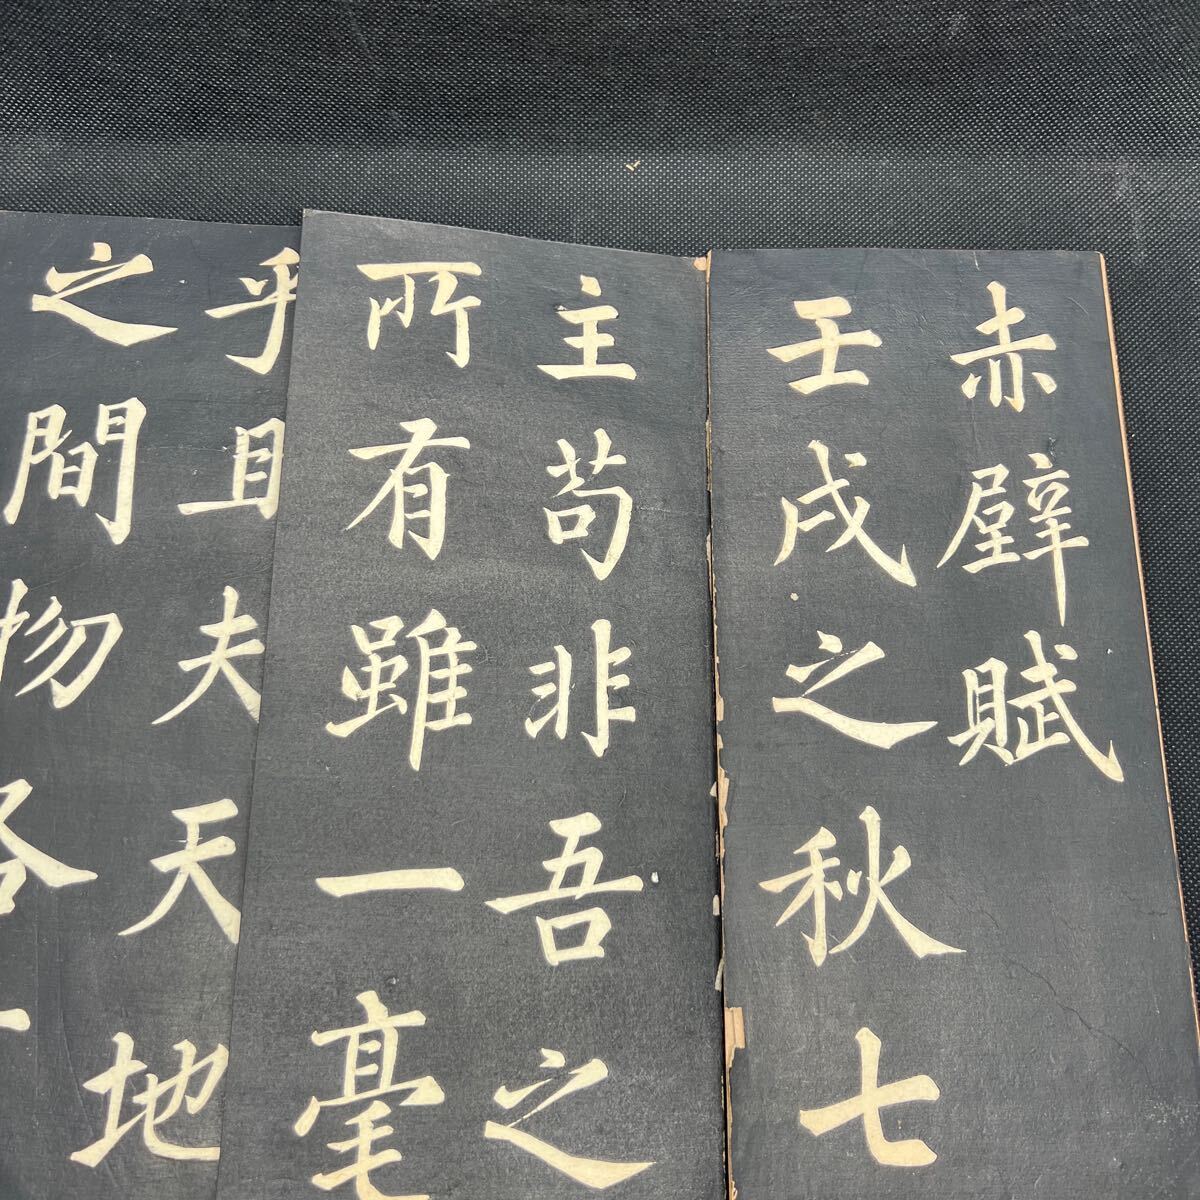 赤壁賦
壬戌之秋七
主苟非吾之
所有雖一毫
乎且夫天地
之間物各一